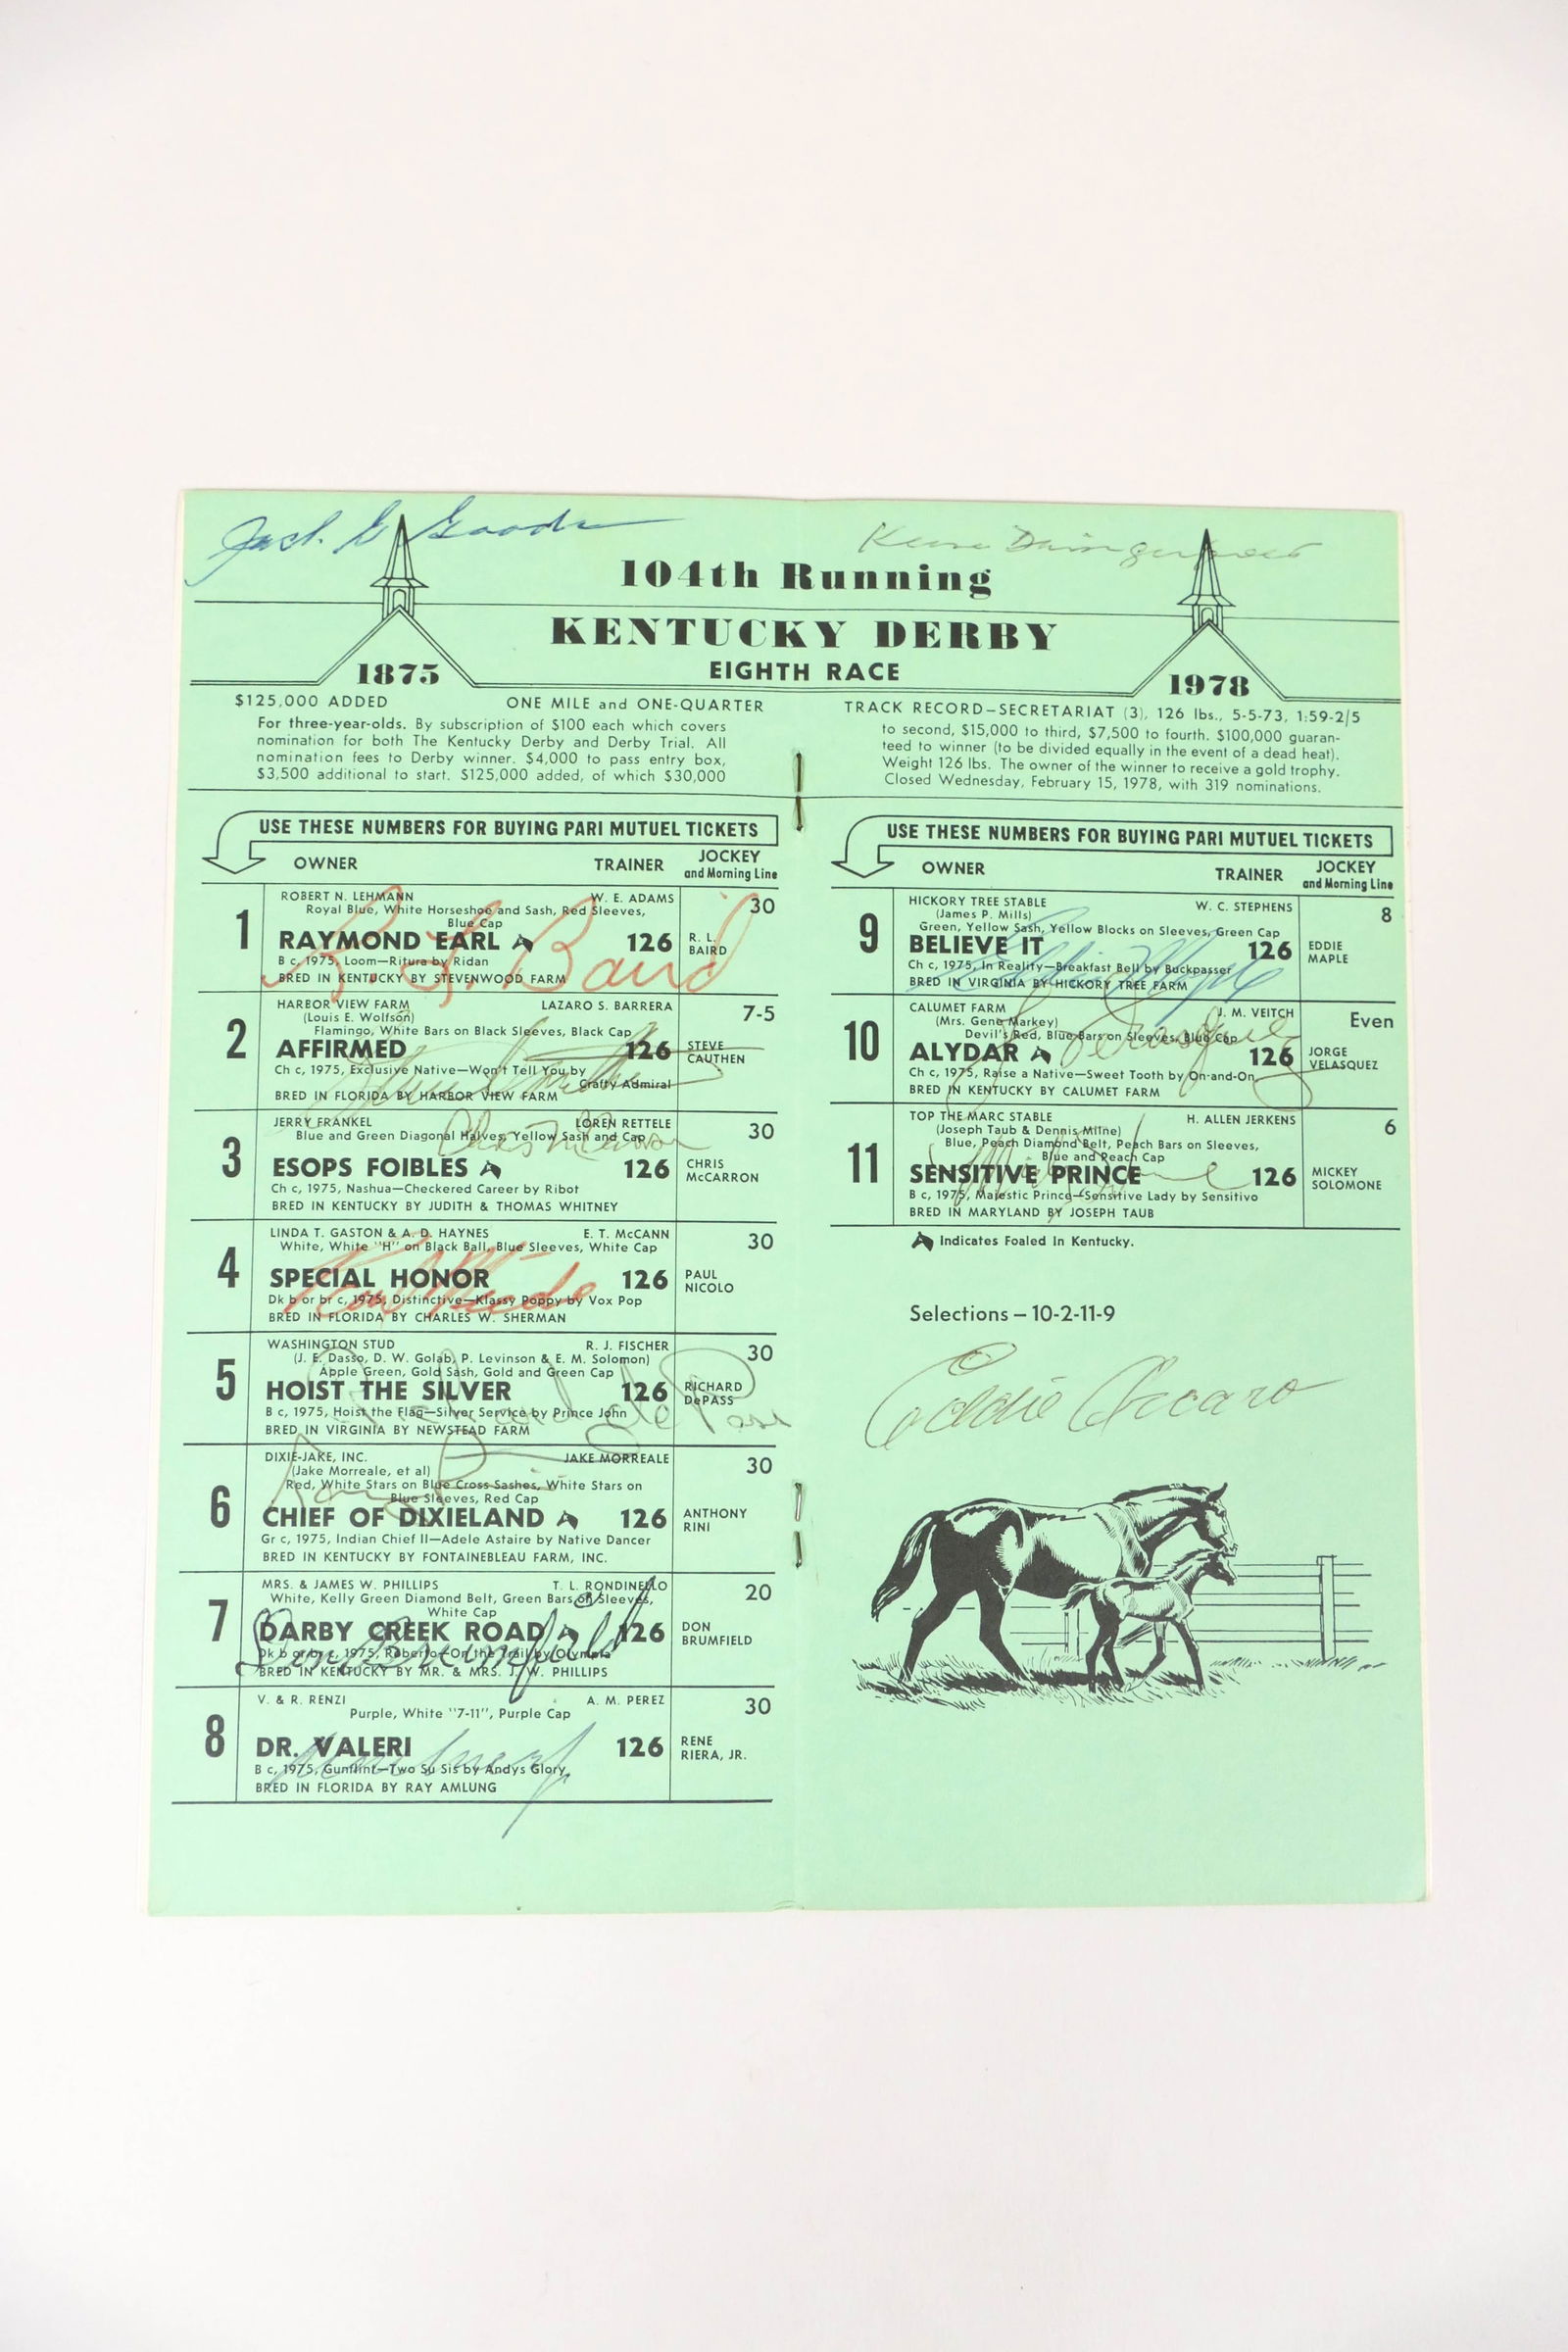 104th Running
KENTUCKY DERBY
EIGHTH RACE
1875
1978
$125,000 ADDED
ONE MILE and ONE-QUARTER
For three-year-olds. By subscription of $100 each which covers
nomination for both The Kentucky Derby and Derby Trial. All
nomination fees to Derby winner. $4,000 to pass entry box,
$3,500 additional to start. $125,000 added, of which $30,000
TRACK RECORD—SECRETARIAT (3), 126 lbs., 5-5-73, 1:59-2/5
to second, $15,000 to third, $7,500 to fourth. $100,000 guaran-
teed to winner (to be divided equally in the event of a dead heat).
Weight 126 lbs. The owner of the winner to receive a gold trophy.
Closed Wednesday, February 15, 1978, with 319 nominations.
USE THESE NUMBERS FOR BUYING PARI MUTUEL TICKETS
OWNER TRAINER JOCKEY
and Morning Line
ROBERT N. LEHMANN W. E. ADAMS 30
Royal Blue, White Horseshoe and Sash, Red Sleeves,
Blue Cap
1 RAYMOND EARL 126 R. L.
BAIRD
B c, 1975, Loom—Ritura by Ridan
BRED IN KENTUCKY BY STEVENWOOD FARM
R. L. Baird
HARBOR VIEW FARM LAZARO S. BARRERA 7-5
(Louis E. Wolfson)
Flamingo, White Bars on Black Sleeves, Black Cap
2 AFFIRMED 126 STEVE
CAUTHEN
Ch c, 1975, Exclusive Native—Won't Tell You by
Crafty Admiral
BRED IN FLORIDA BY HARBOR VIEW FARM
Steve Cauthen
JERRY FRANKEL LOREN RETTELE 30
Blue and Green Diagonal Halves, Yellow Sash and Cap
Chris McCarron
3 ESOPS FOIBLES 126 CHRIS
McCARRON
Ch c, 1975, Nashua—Checkered Career by Ribot
BRED IN KENTUCKY BY JUDITH & THOMAS WHITNEY
LINDA T. GASTON & A. D. HAYNES E. T. McCANN 30
White, White "H" on Black Ball, Blue Sleeves, White Cap
4 SPECIAL HONOR 126 PAUL
NICOLO
Dk b or br c, 1975, Distinctive—Klassy Poppy by Vox Pop
BRED IN FLORIDA BY CHARLES W. SHERMAN
WASHINGTON STUD R. J. FISCHER 30
(J. E. Dasso, D. W. Golab, P. Levinson & E. M. Solomon)
Apple Green, Gold Sash, Gold and Green Cap
5 HOIST THE SILVER 126 RICHARD
DePASS
B c, 1975, Hoist the Flag—Silver Service by Prince John
BRED IN VIRGINIA BY NEWSTEAD FARM
Richard de Pass
DIXIE-JAKE, INC. JAKE MORREALE 30
(Jake Morreale, et al)
Red, White Stars on Blue Cross Sashes, White Stars on
Blue Sleeves, Red Cap
6 CHIEF OF DIXIELAND 126 ANTHONY
RINI
Gr c, 1975, Indian Chief II—Adele Astaire by Native Dancer
BRED IN KENTUCKY BY FONTAINEBLEAU FARM, INC.
MRS. & JAMES W. PHILLIPS T. L. RONDINELLO 20
White, Kelly Green Diamond Belt, Green Bars on Sleeves,
White Cap
7 DARBY CREEK ROAD 126 DON
BRUMFIELD
Dk b or br c, 1975, Roberto—On the Trail by Olympia
BRED IN KENTUCKY BY MR. & MRS. J. W. PHILLIPS
Don Brumfield
V. & R. RENZI A. M. PEREZ 30
Purple, White "7-11", Purple Cap
8 DR. VALERI 126 RENE
RIERA, JR.
B c, 1975, Gunflint—Two Su Sis by Andys Glory
BRED IN FLORIDA BY RAY AMLUNG
USE THESE NUMBERS FOR BUYING PARI MUTUEL TICKETS
OWNER TRAINER JOCKEY
and Morning Line
HICKORY TREE STABLE W. C. STEPHENS 8
(James P. Mills)
Green, Yellow Sash, Yellow Blocks on Sleeves, Green Cap
9 BELIEVE IT 126 EDDIE
MAPLE
Ch c, 1975, In Reality—Breakfast Bell by Buckpasser
BRED IN VIRGINIA BY HICKORY TREE FARM
Eddie Maple
CALUMET FARM J. M. VEITCH Even
(Mrs. Gene Markey)
Devil's Red, Blue Bars on Sleeves, Blue Cap
10 ALYDAR 126 JORGE
VELASQUEZ
Ch c, 1975, Raise a Native—Sweet Tooth by On-and-On
BRED IN KENTUCKY BY CALUMET FARM
TOP THE MARC STABLE H. ALLEN JERKENS 6
(Joseph Taub & Dennis Milne)
Blue, Peach Diamond Belt, Peach Bars on Sleeves,
Blue and Peach Cap
11 SENSITIVE PRINCE 126 MICKEY
SOLOMONE
B c, 1975, Majestic Prince—Sensitive Lady by Sensitivo
BRED IN MARYLAND BY JOSEPH TAUB
Indicates Foaled In Kentucky.
Selections — 10-2-11-9
Eddie Arcaro